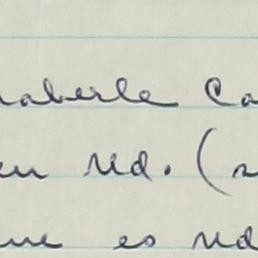 naberle Ca
en Ud. (
me es Ud